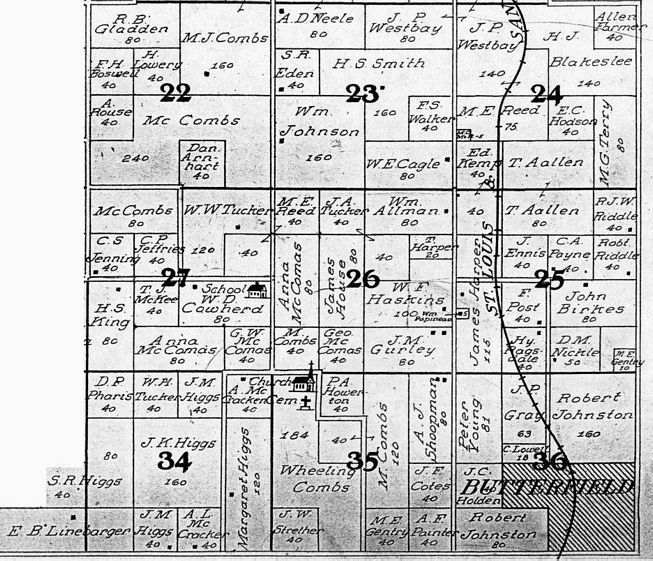 R.B.
Gladden
80
M.J. Combs
160
F.H.
Boswell
40
H.
Lowery
40
22
A.
Rouse
40
Mc Combs
240
Dan.
Arn-
hart
40
A.D. Neele
80
J.P.
Westbay
80
S.R.
Eden
40
H S Smith
160
23
Wm.
Johnson
160
F.S.
Walker
40
W.E. Cagle
80
J.P.
Westbay
140
SAN
H.J.
Blakeslee
140
Allen
Farmer
40
24
M.E. Reed
75
E.C.
Hodson
40
M.G. Terry
80
Ed.
Kemp
40
T. Aallen
80
McCombs
80
W.W. Tucker
120
C.S
Jenning
40
C.P.
Jeffries
40
40
27
T.J.
McKee
40
School
W.D.
Cowherd
80
H.S.
King
80
Anna
McComas
80
G.W.
Mc
Comas
40
M.E.
Reed
40
J.A.
Tucker
40
Wm.
Allman
80
Anna
McComas
80
James
House
80
40
T.
Harper
20
26
W.F.
Haskins
100
Wm
Papineau
M.
Combs
40
Geo.
Mc
Comas
40
J.M.
Gurley
80
40
T Aallen
80
R.J.W.
Riddle
40
J.
Ennis
40
C.A.
Payne
40
Robt.
Riddle
40
ST. LOUIS &
James Harper
115
25
F.
Post
40
John
Birkes
80
Hy.
Rags-
dale
40
D.M.
Nickle
50
M E
Gentry
10
D.P.
Pharis
40
W.H.
Tucker
40
J.M.
Higgs
40
80
J.K. Higgs
160
34
S.R. Higgs
40
E B Linebarger
J.M.
Higgs
40
A.L.
Mc
Cracker
40
Margaret Higgs
120
Church
Cem.
P.A.
Hower-
ton
40
184
40
35
Wheeling
Combs
M. Combs
120
A.J.
Shoopman
80
J.F.
Cotes
40
J.W.
Strether
40
M.E.
Gentry
40
A.F.
Painter
40
Peter
Young
81
J.P.
Gray
63
Robert
Johnston
160
C. Lowe
18
36
J.C.
Holden
BUTTERFIELD
Robert
Johnston
80